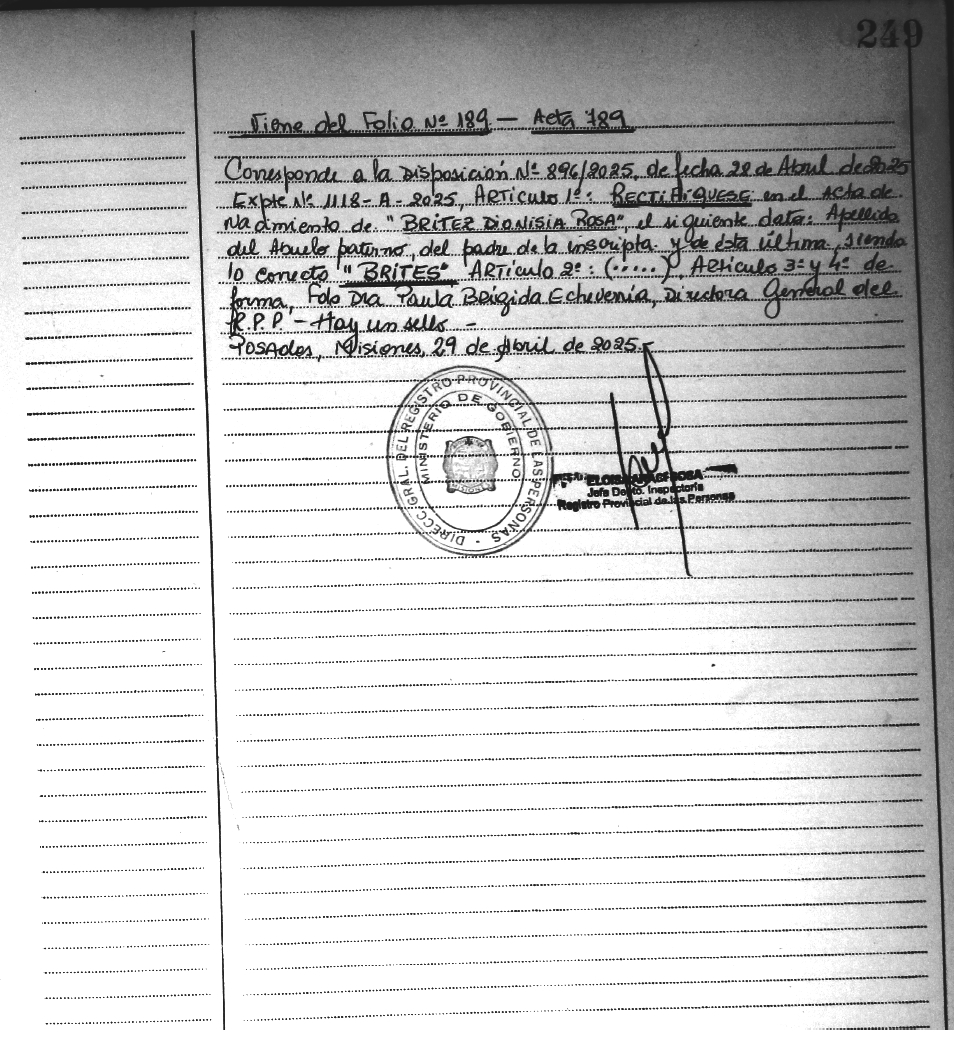 249
Viene del Folio Nº 189 — Acta 789
Corresponde a la Disposición Nº 896/2025, de fecha 28 de Abril de 2025
Expte Nº 1118-A-2025, ARTICULO 1º: RECTIFIQUESE en el Acta de
Nacimiento de "BRITEZ DIONISIA ROSA", el siguiente dato: Apellido
del Abuelo paterno, del padre de la inscripta y de ésta última, siendo
lo correcto "BRITES" ARTICULO 2º: (.....), Articulo 3º y 4º de
forma, Fdo Dra Paula Brigida Echeverria, Directora General del
R.P.P. - Hay un sello -
Posadas, Misiones, 29 de Abril de 2025.
DIRECC. GRAL. DEL REGISTRO PROVINCIAL DE LAS PERSONAS -
MINISTERIO DE GOBIERNO
Jefa Depto. Inspectoria
Registro Provincial de las Personas